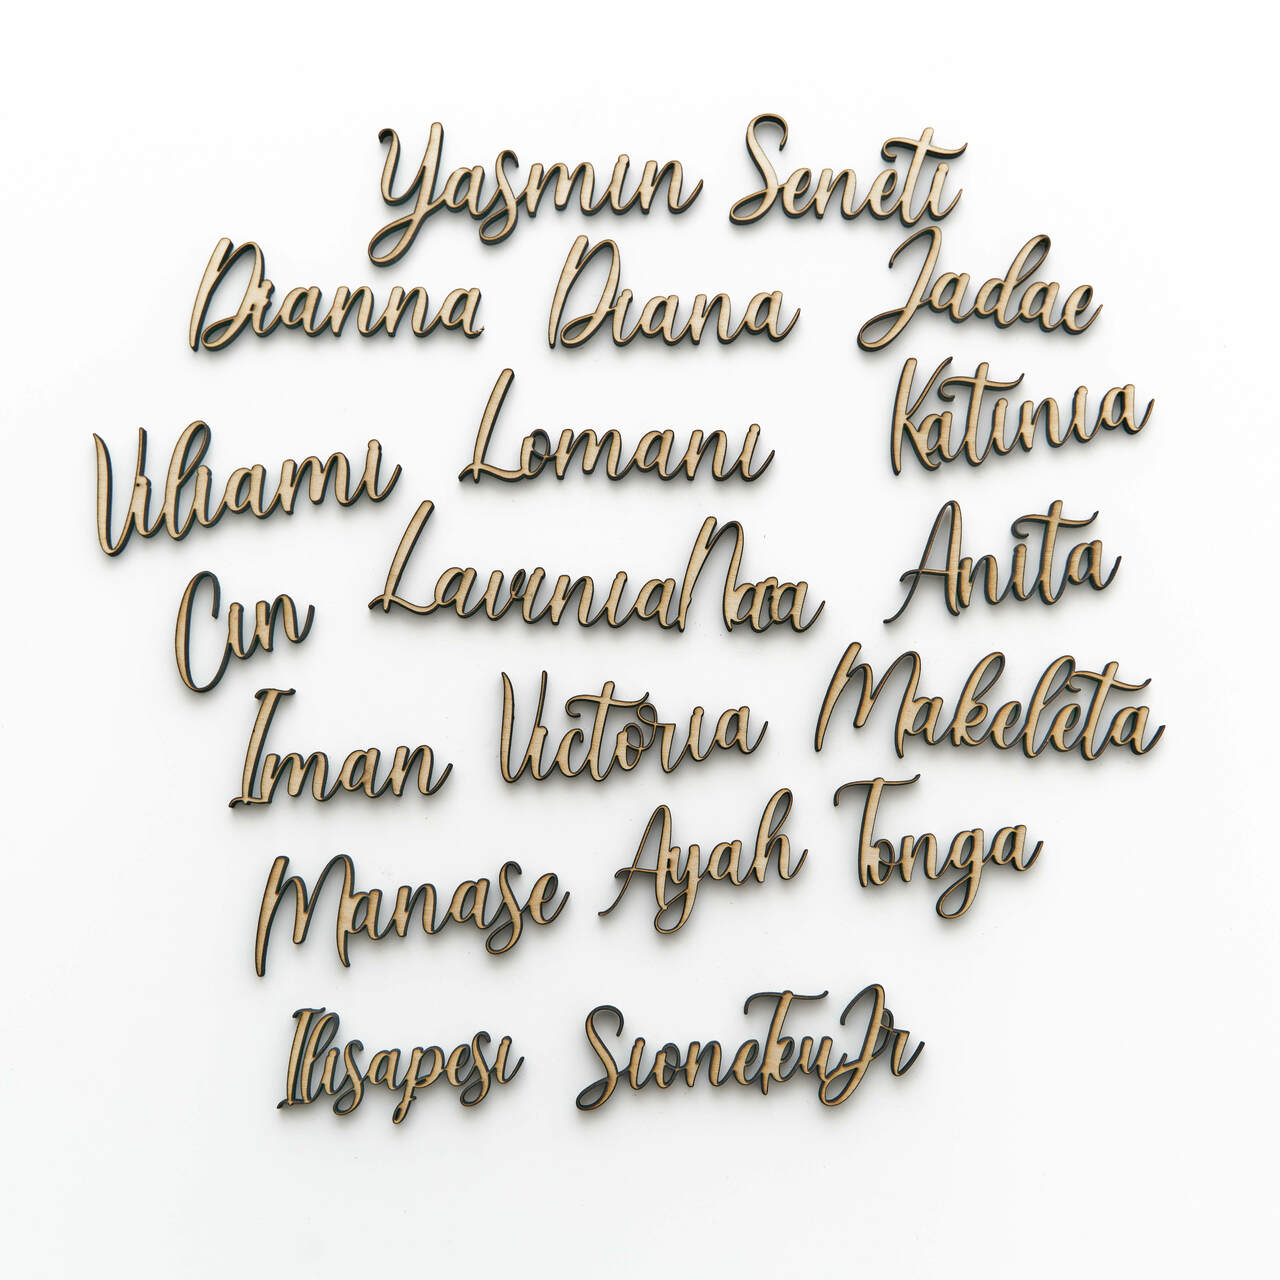 Yasmin Seneti
Dianna Diana Jadae
Viliami Lomani Katinia
Cin LaviniaNara Anita
Iman Victoria Makeleta
Manase Ayah Tonga
Ilisapesi SioneTekuJr